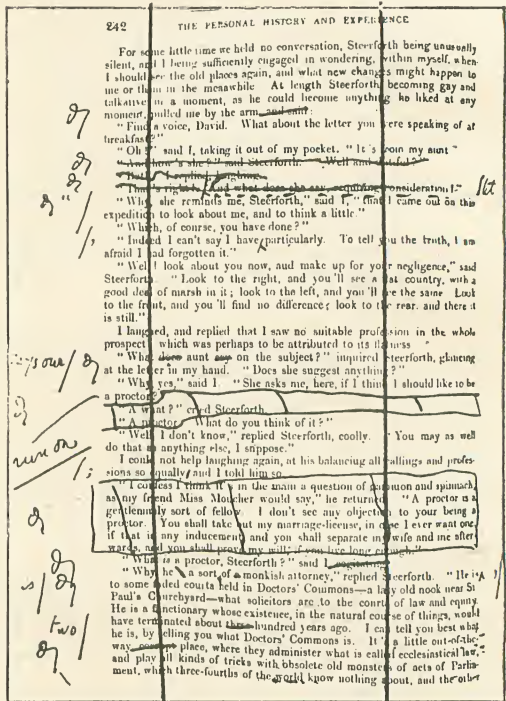 242 THE PERSONAL HISTORY AND EXPERIENCE
For some little time we held no conversation, Steerforth being unusually
silent, and I being sufficiently engaged in wondering, within myself, when
I should see the old places again, and what new changes might happen to
me or them in the meanwhile At length Steerforth, becoming gay and
talkative in a moment, as he could become anything he liked at any
moment, pulled me by the arm, and said:
"Find a voice, David. What about the letter you were speaking of at
breakfast?"
"Oh!" said I, taking it out of my pocket. "It's from my aunt"
"And how's she?" said Steerforth. "Well and
"That's right. And what does she say, requiring consideration?" Stet
"Why, she reminds me, Steerforth," said I, "that I came out on this
expedition to look about me, and to think a little."
"Which, of course, you have done?"
"Indeed I can't say I have particularly. To tell you the truth, I am
afraid I had forgotten it."
"Well! look about you now, and make up for your negligence," said
Steerforth. "Look to the right, and you'll see a flat country, with a
good deal of marsh in it; look to the left, and you'll see the same Look
to the front, and you'll find no difference; look to the rear, and there it
is still."
I laughed, and replied that I saw no suitable profession in the whole
prospect which was perhaps to be attributed to its flatness
says our "What does aunt say on the subject?" inquired Steerforth, glancing
at the letter in my hand. "Does she suggest anything?"
"Why, yes," said I. "She asks me, here, if I think I should like to be
a proctor?
"A what?" cried Steerforth.
"A proctor. What do you think of it?"
"Well, I don't know," replied Steerforth, coolly. "You may as well
run on do that as anything else, I suppose."
I could not help laughing again, at his balancing all callings and profes-
sions so equally; and I told him so
"I confess I think it in the main a question of gammon and spinnach,
as my friend Miss Moucher would say," he returned "A proctor is a
gentlemanly sort of fellow. I don't see any objection to your being a
proctor. You shall take out my marriage-license, in case I ever want one
if that is any inducement and you shall separate my wife and me after-
wards, and you shall prove my will, if you live long enough."
"What is a proctor, Steerforth?" said I
"Why, he a sort of a monkish attorney," replied Steerforth. "He is,
is to some faded courts held in Doctors' Commons—a lazy old nook near St
Paul's Churchyard—what solicitors are to the courts of law and equity.
He is a functionary whose existence, in the natural course of things, would
two have terminated about three hundred years ago. I can tell you best what
he is, by telling you what Doctors' Commons is. It's a little out-of-the-
way place, where they administer what is called ecclesiastical law,
and play all kinds of tricks with obsolete old monsters of acts of Parlia-
ment, which three-fourths of the world know nothing about, and the other